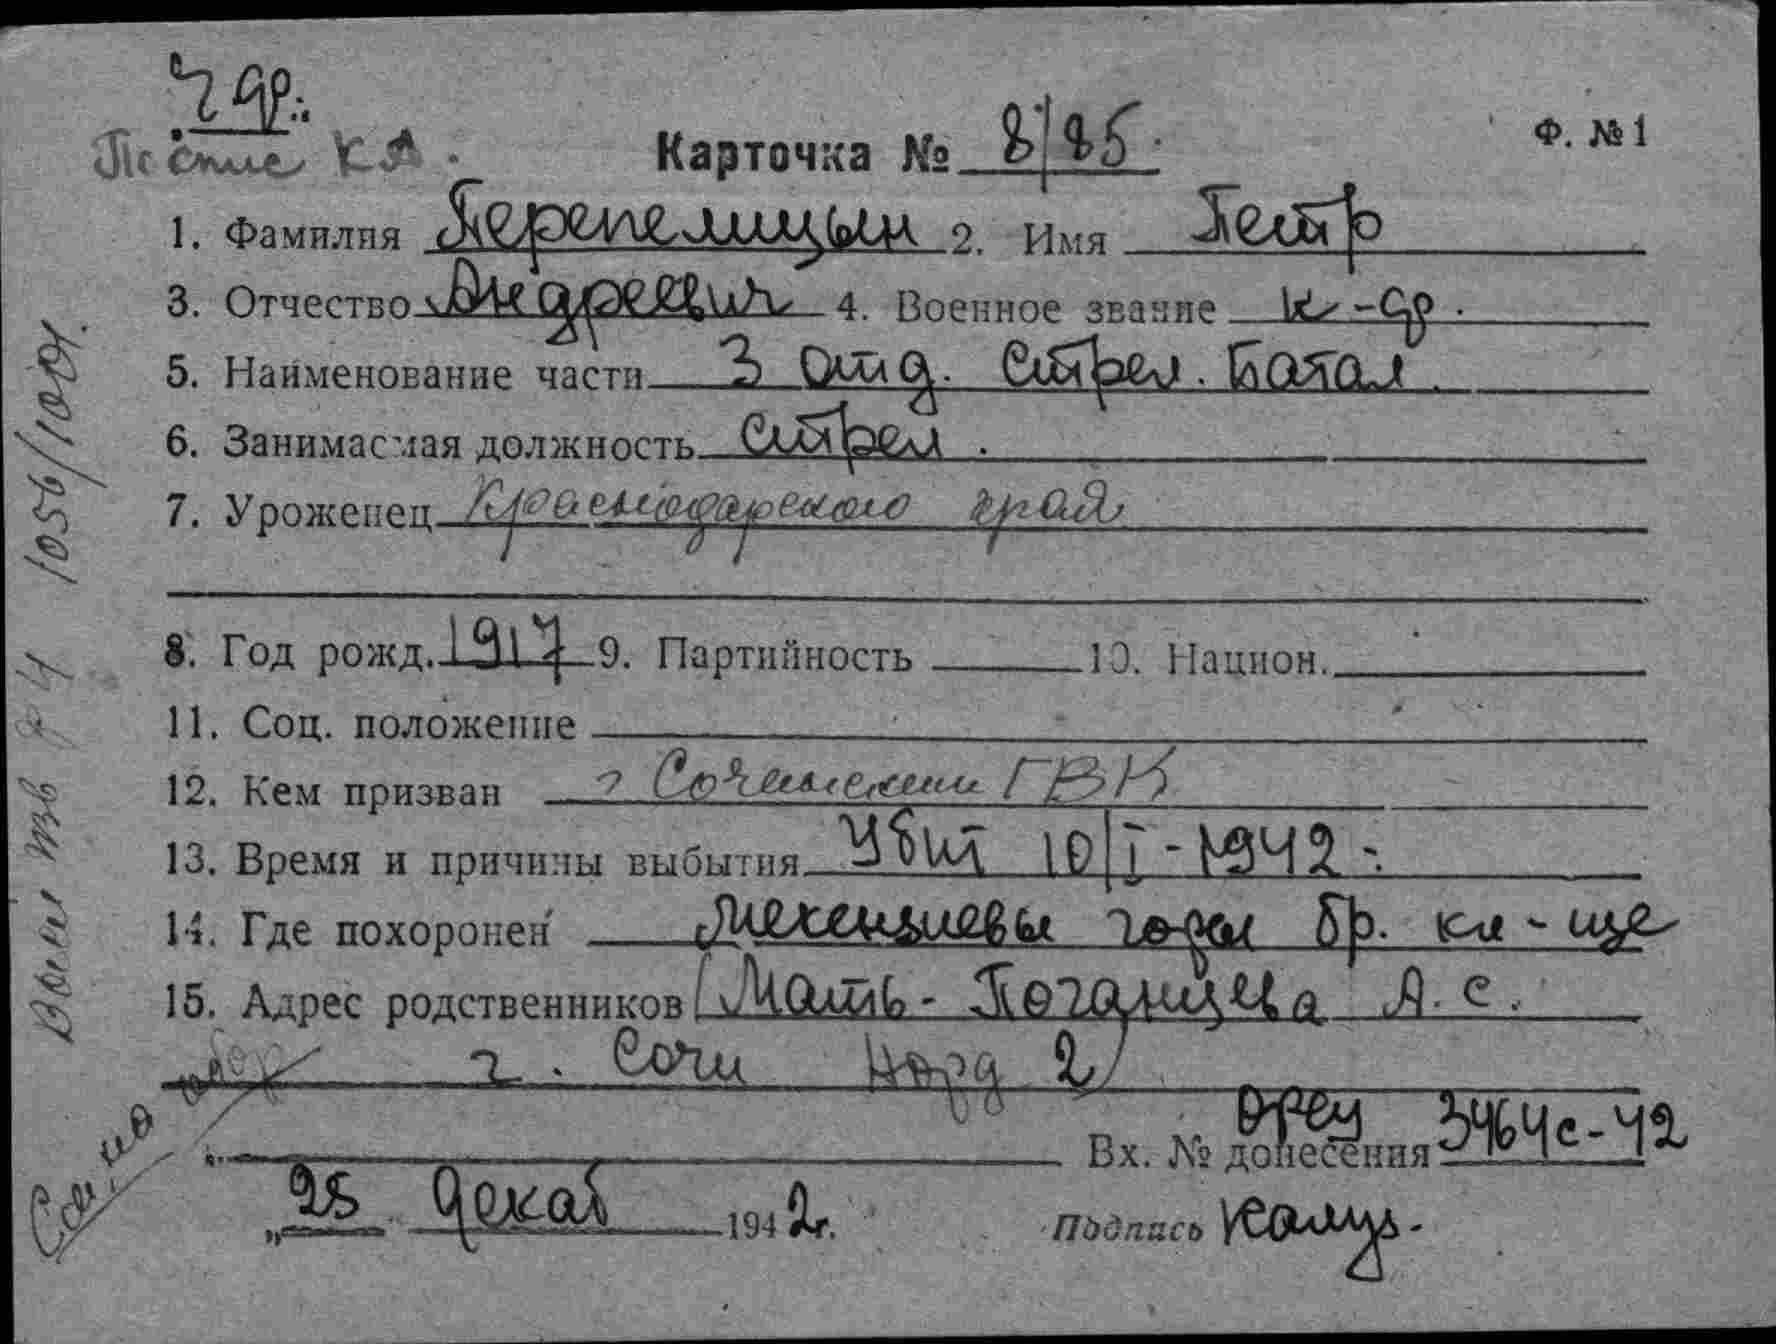 Карточка № 8/85
Ф. № 1
1. Фамилия Перепелицын 2. Имя Петр
3. Отчество Андреевич 4. Военное звание к-др.
5. Наименование части 3 отд. Стрел. Батал.
6. Занимаемая должность Стрел.
7. Уроженец Краснодарского края
8. Год рожд. 1917 9. Партийность 10. Национ.
11. Соц. положение
12. Кем призван Сочинским ГВК
13. Время и причины выбытия Убит 10/I-1942
14. Где похоронен Мекензиевы горы бр. кл-ще
15. Адрес родственников Мать - Поганцева А. С.
г. Сочи Норд 2
Вх. № донесения 3464с-42
„25 декаб 1942г.
Подпись
1056/1001.